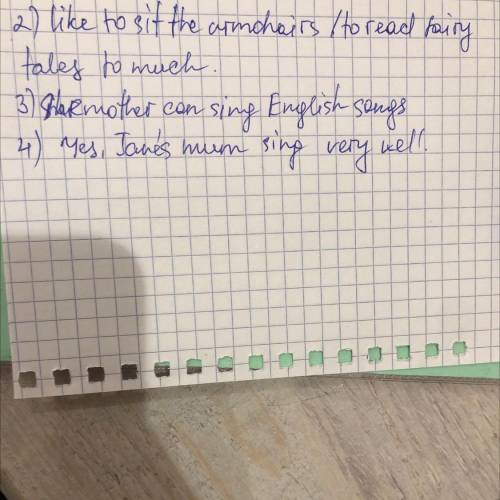 2) like to sit the armchairs / to read fairy
tales to much.
3) mother can sing English songs
4) Yes, Jane's mum sing very well.